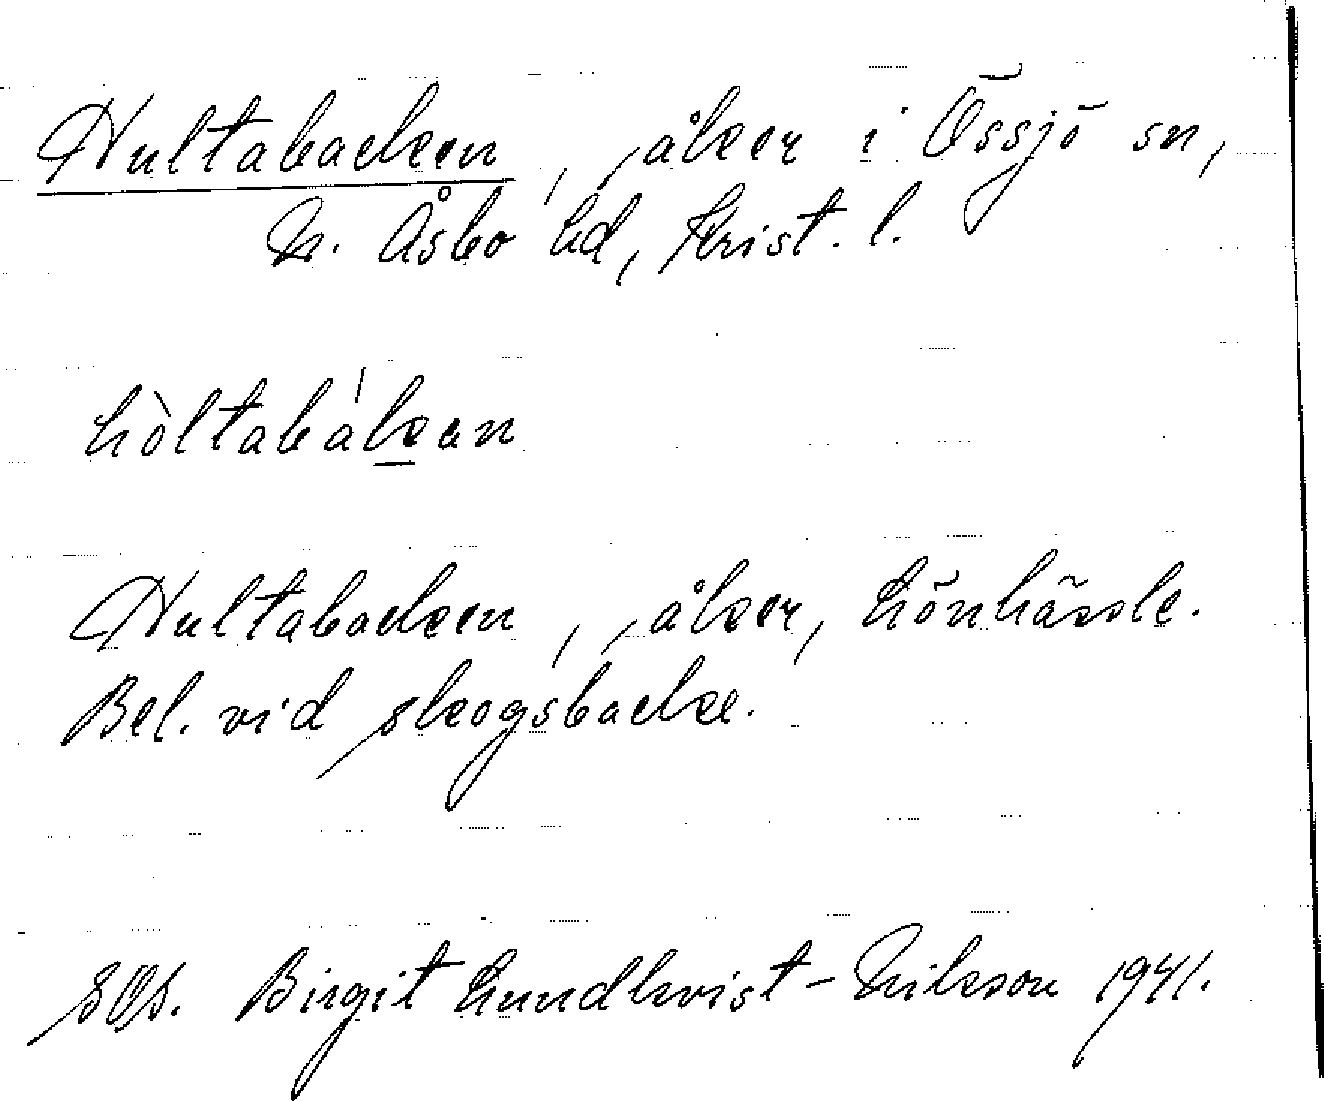 Hultabacken, åker i Össjö sn,
N. Åsbo hd, Krist. l.
hòltabákan
Hultabacken, åker, Lönhässle.
Bel. vid skogsbacke.
SOS. Birgit Lundkvist-Nilsson 1941.